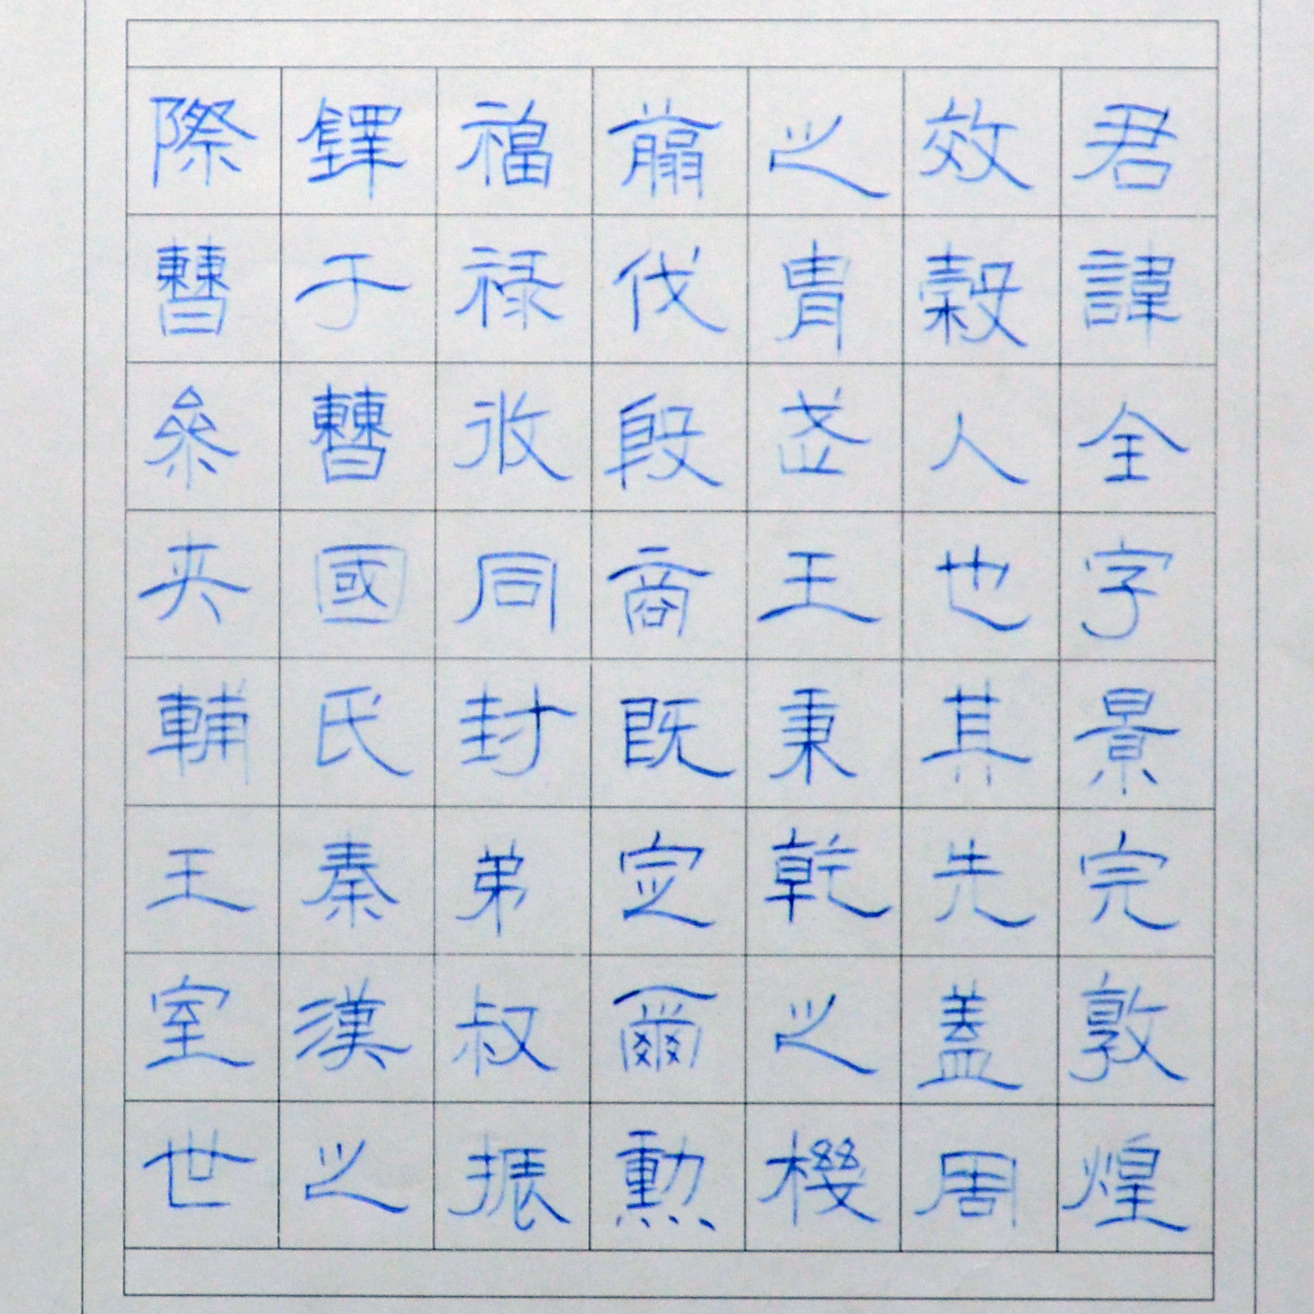 君諱全字景完敦煌
效穀人也其先蓋周
之冑武王秉乾之機
翦伐殷商既定爾勳
福祿攸同封弟叔振
鐸于曹國氏秦漢之
際曹參夾輔王室世